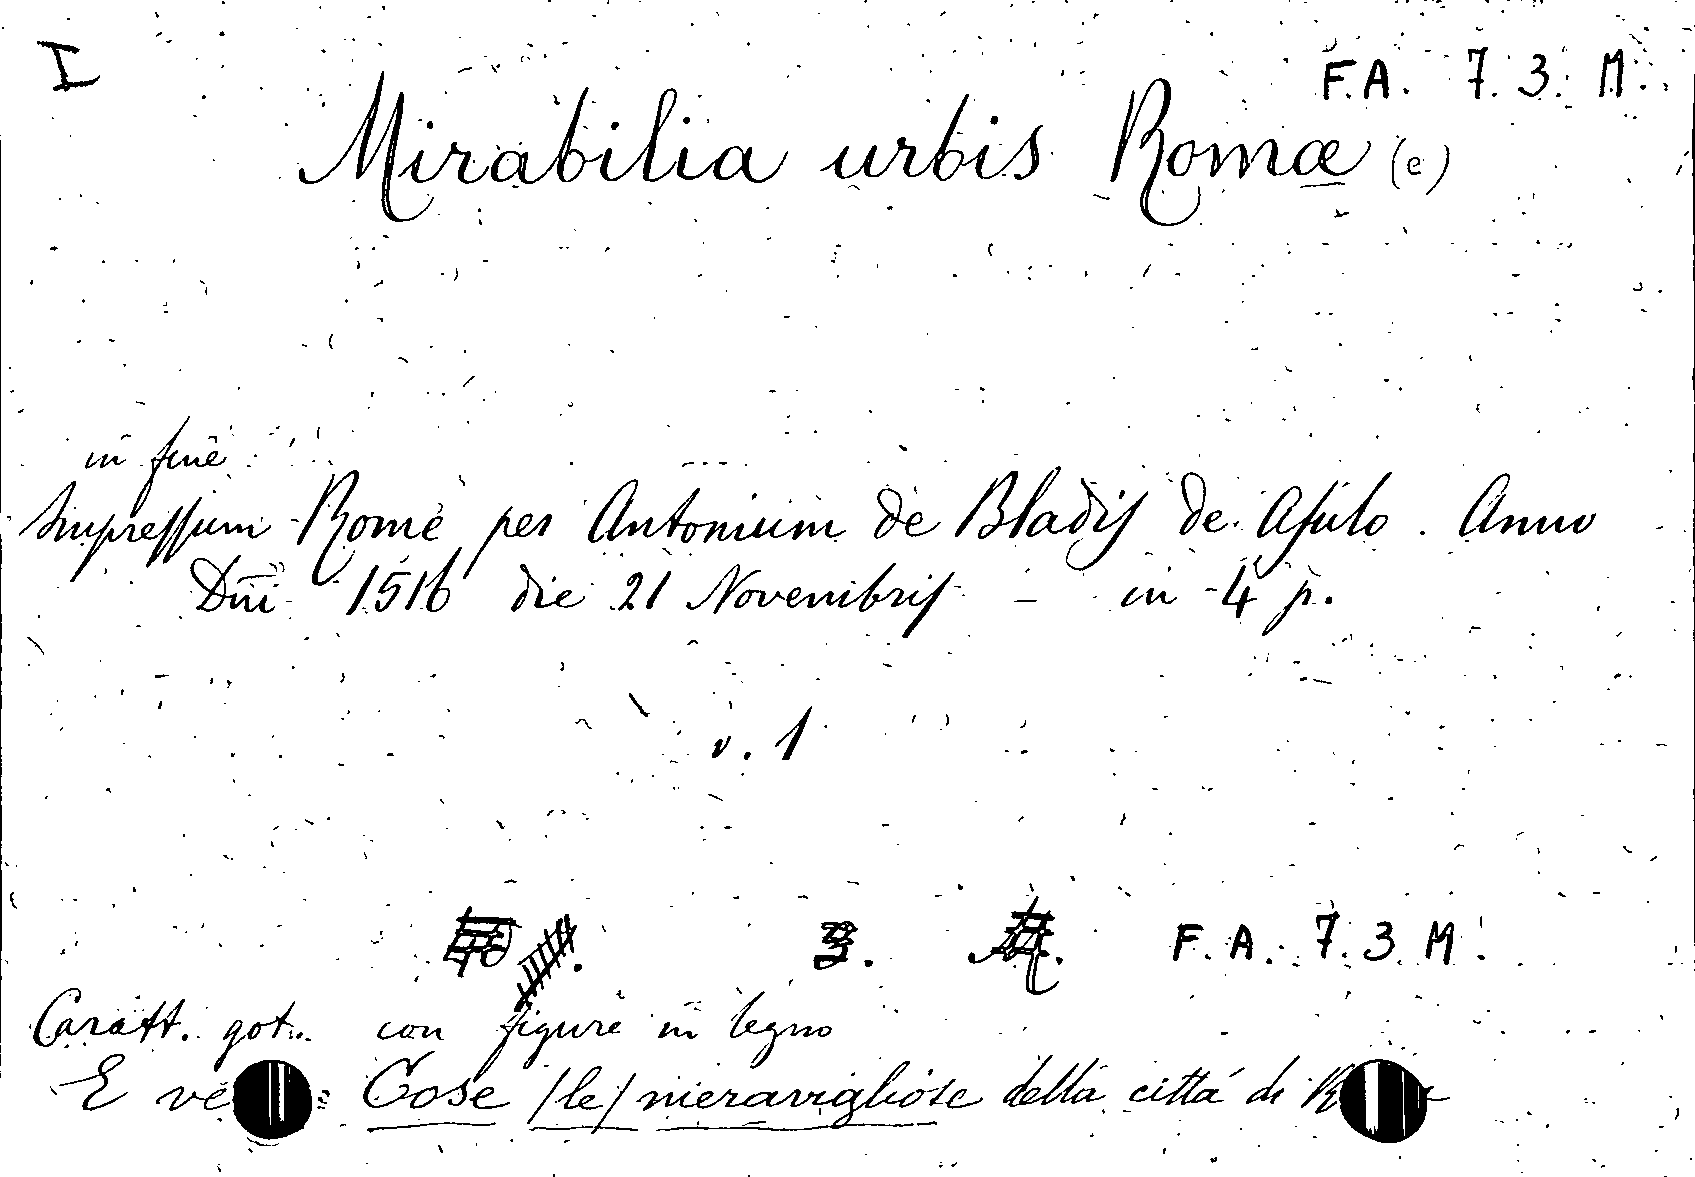 I
F.A. 7. 3. M.
Mirabilia urbis Romæ (e)
in fine
Impressum Rome per Antonium de Bladis de Asulo. Anno
Dñi 1516 die 21 Novembris - in 4 p.
v. 1
3. M. F. A. 7. 3. M.
Caratt. got. con figure in legno
E ve Cose /le/ meravigliose della città di